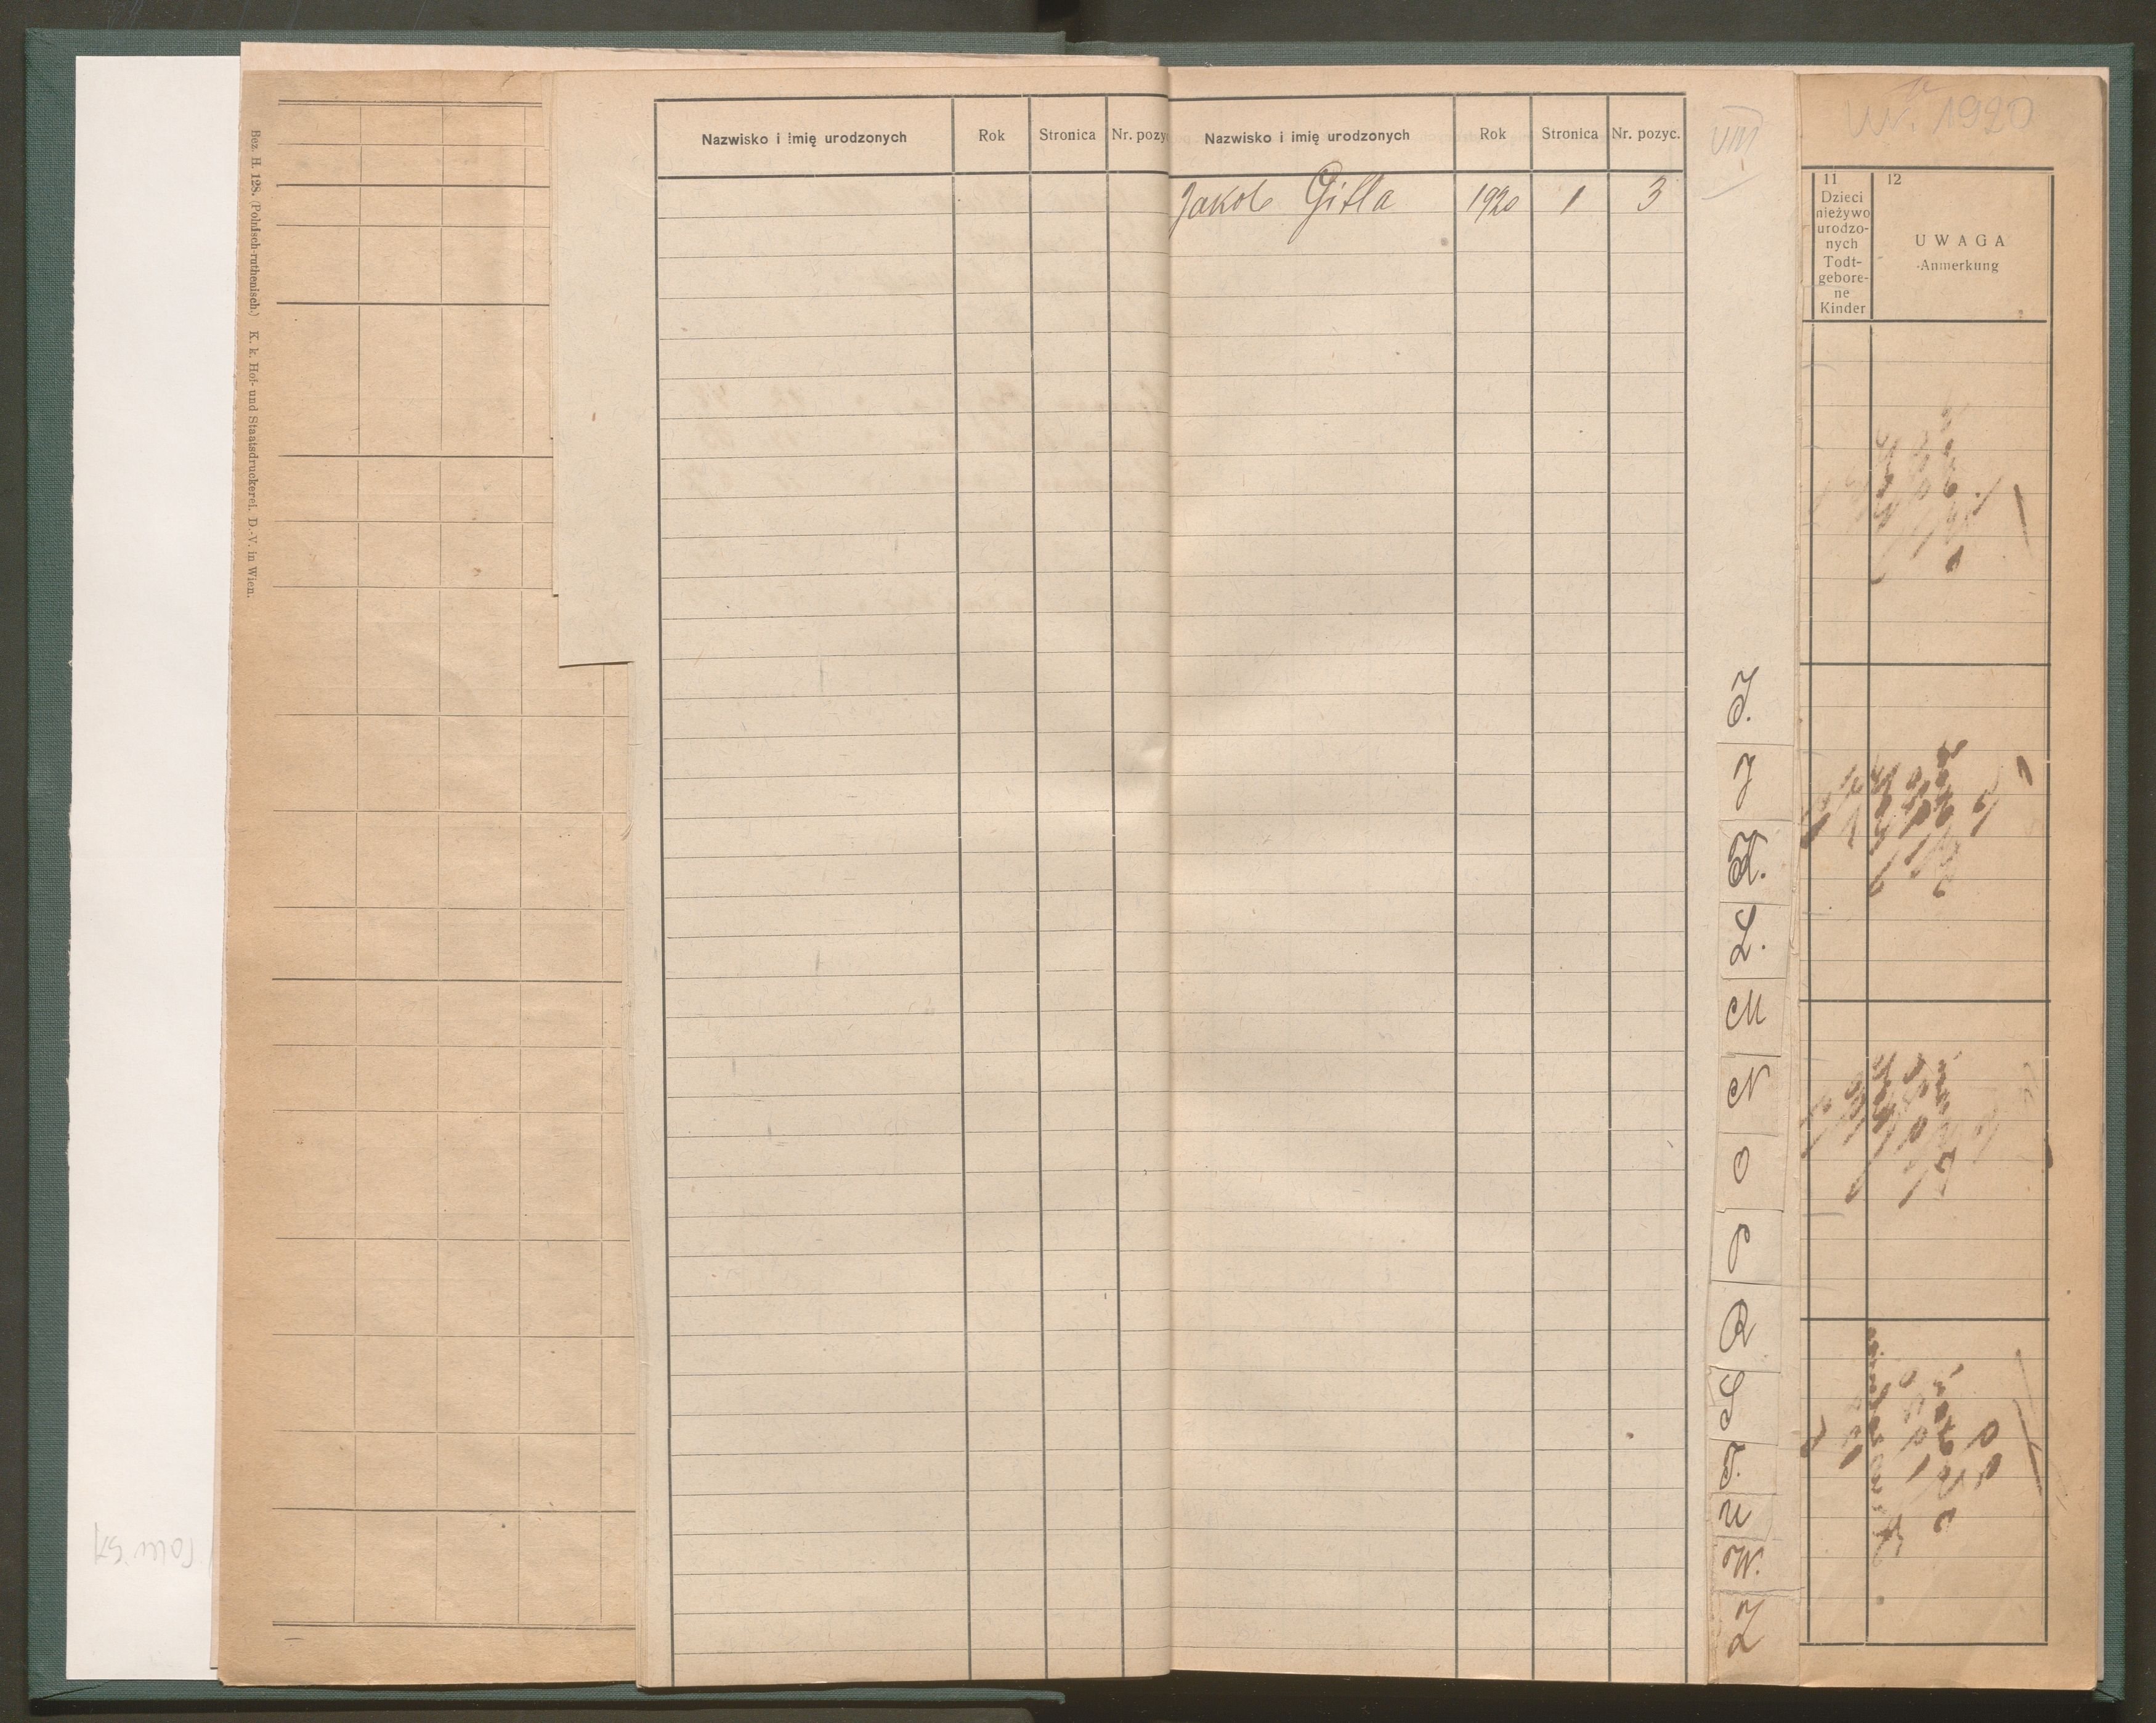 Bez. H. 128. (Polnisch-ruthenisch.) K. k. Hof- und Staatsdruckerei. D.-V. in Wien.
Nazwisko i imię urodzonych Rok Stronica Nr. pozy
Nazwisko i imię urodzonych Rok Stronica Nr. pozyc.
Jakob Gitla 1920 1 3
VIII
I.
J
K.
L.
M
N
O
P
R
S
T.
U
W.
Z
1920
11 12
Dzieci
nieżywo
urodzo-
nych
Todt-
gebore-
ne
Kinder
UWAGA
Anmerkung